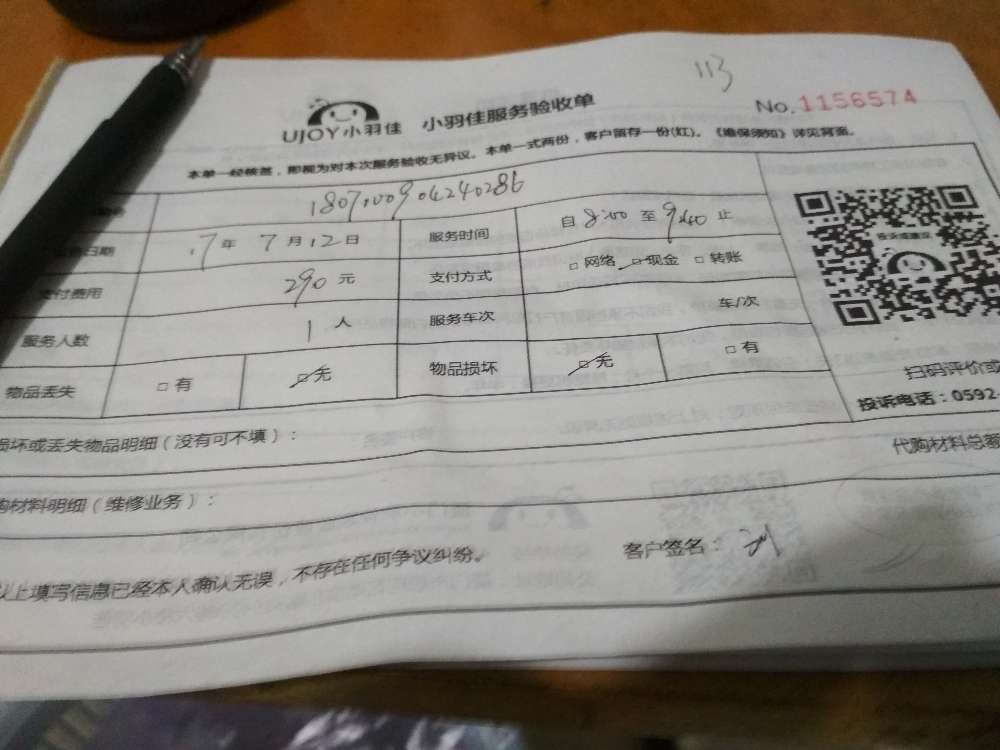 113
UJOY小羽佳 小羽佳服务验收单 No.1156574
本单一经核签，即视为对本次服务验收无异议。本单一式两份，客户留存一份(红)。《维保须知》详见背面。
日期 17年7月12日 服务时间 自8:00至9:40止
支付费用 290元 支付方式 □网络 □现金 □转账
服务人数 1人 服务车次 车/次
物品丢失 □有 □无 物品损坏 □无 □有
扫码评价或
投诉电话：0592-
损坏或丢失物品明细（没有可不填）：
代购材料总额
购材料明细（维修业务）：
以上填写信息已经本人确认无误，不存在任何争议纠纷。 客户签名：刘